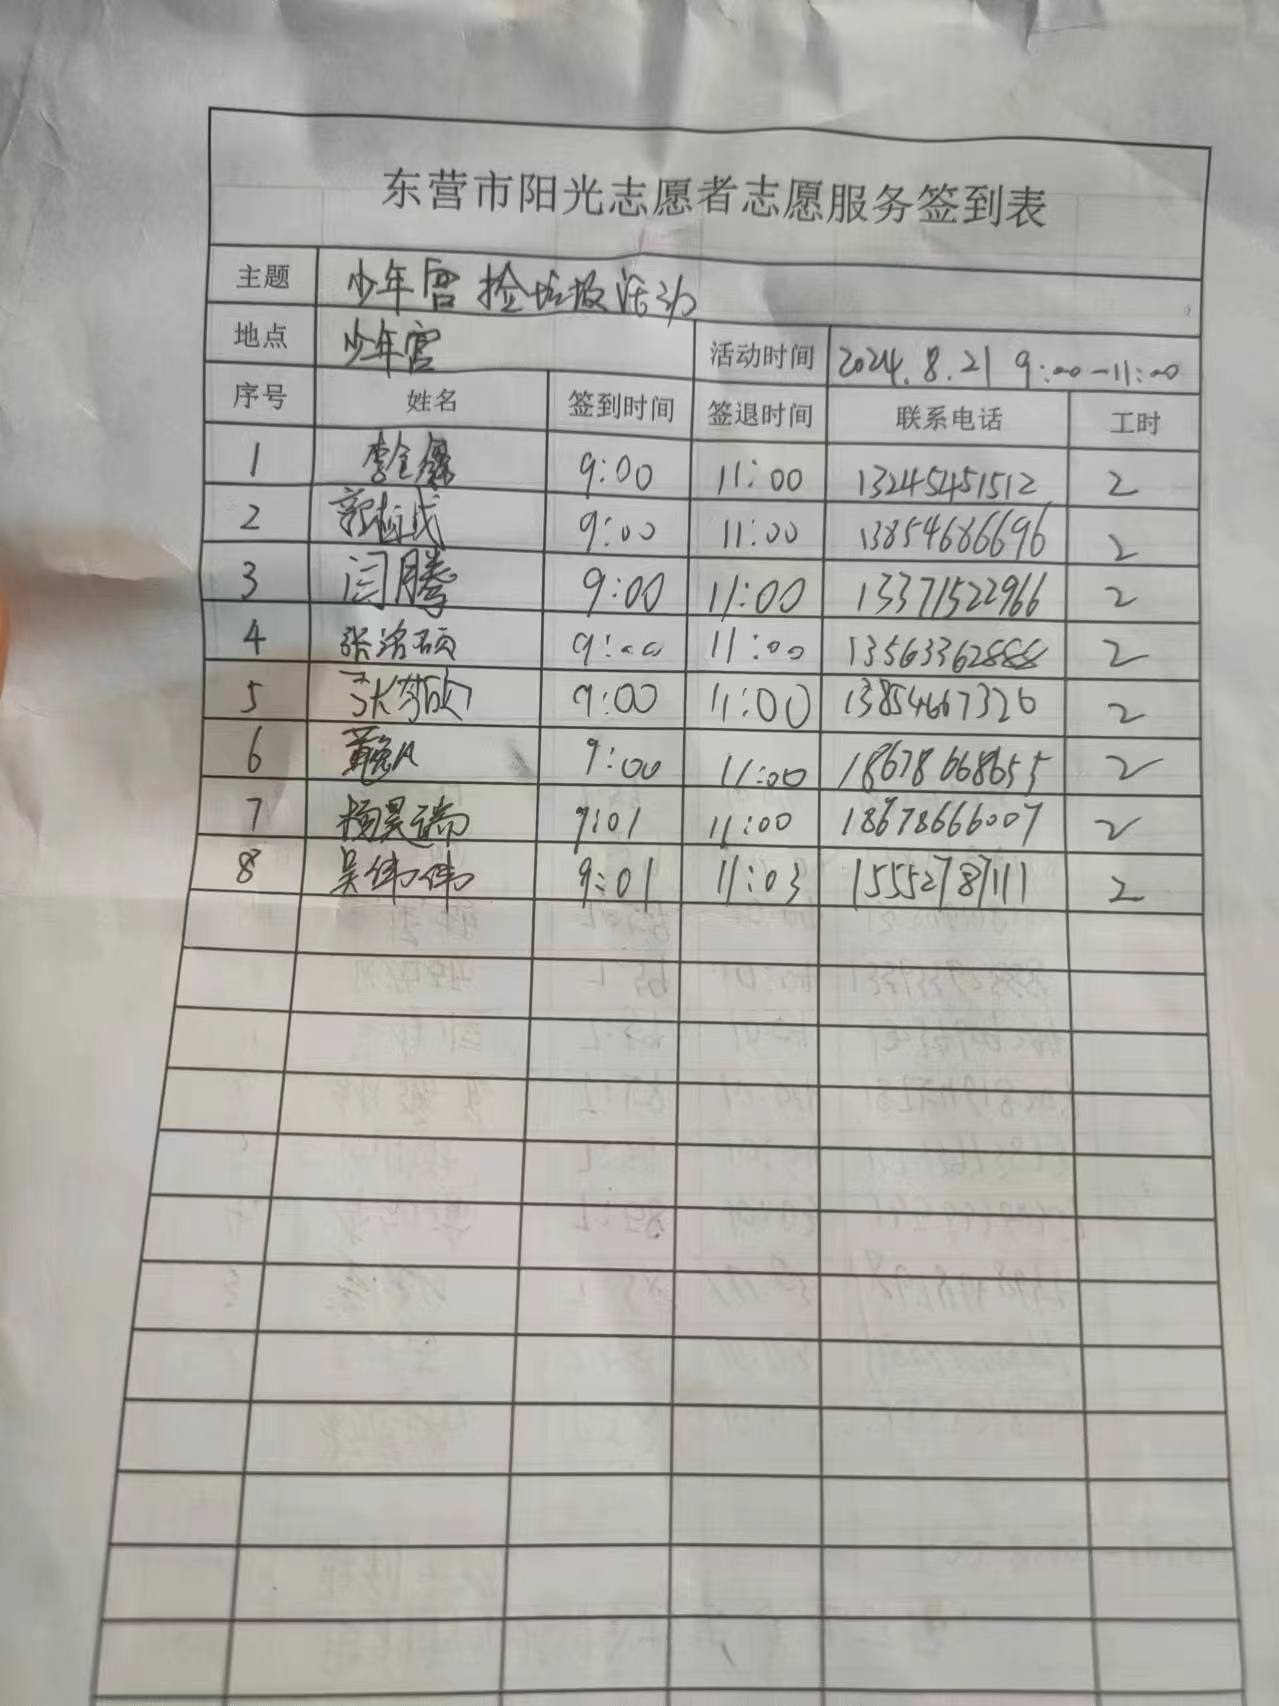 东营市阳光志愿者志愿服务签到表
主题 少年宫捡垃圾活动
地点 少年宫 活动时间 2024.8.21 9:00-11:00
序号 姓名 签到时间 签退时间 联系电话 工时
1 李全儒 9:00 11:00 13245451512 2
2 9:00 11:00 13854686696 2
3 闫腾 9:00 11:00 13371522966 2
4 张洺硕 9:00 11:00 13563362888 2
5 9:00 11:00 13854667326 2
6 9:00 11:00 18678668655 2
7 杨昊瑞 9:01 11:00 18678666007 2
8 吴伟伟 9:01 11:03 15552787111 2